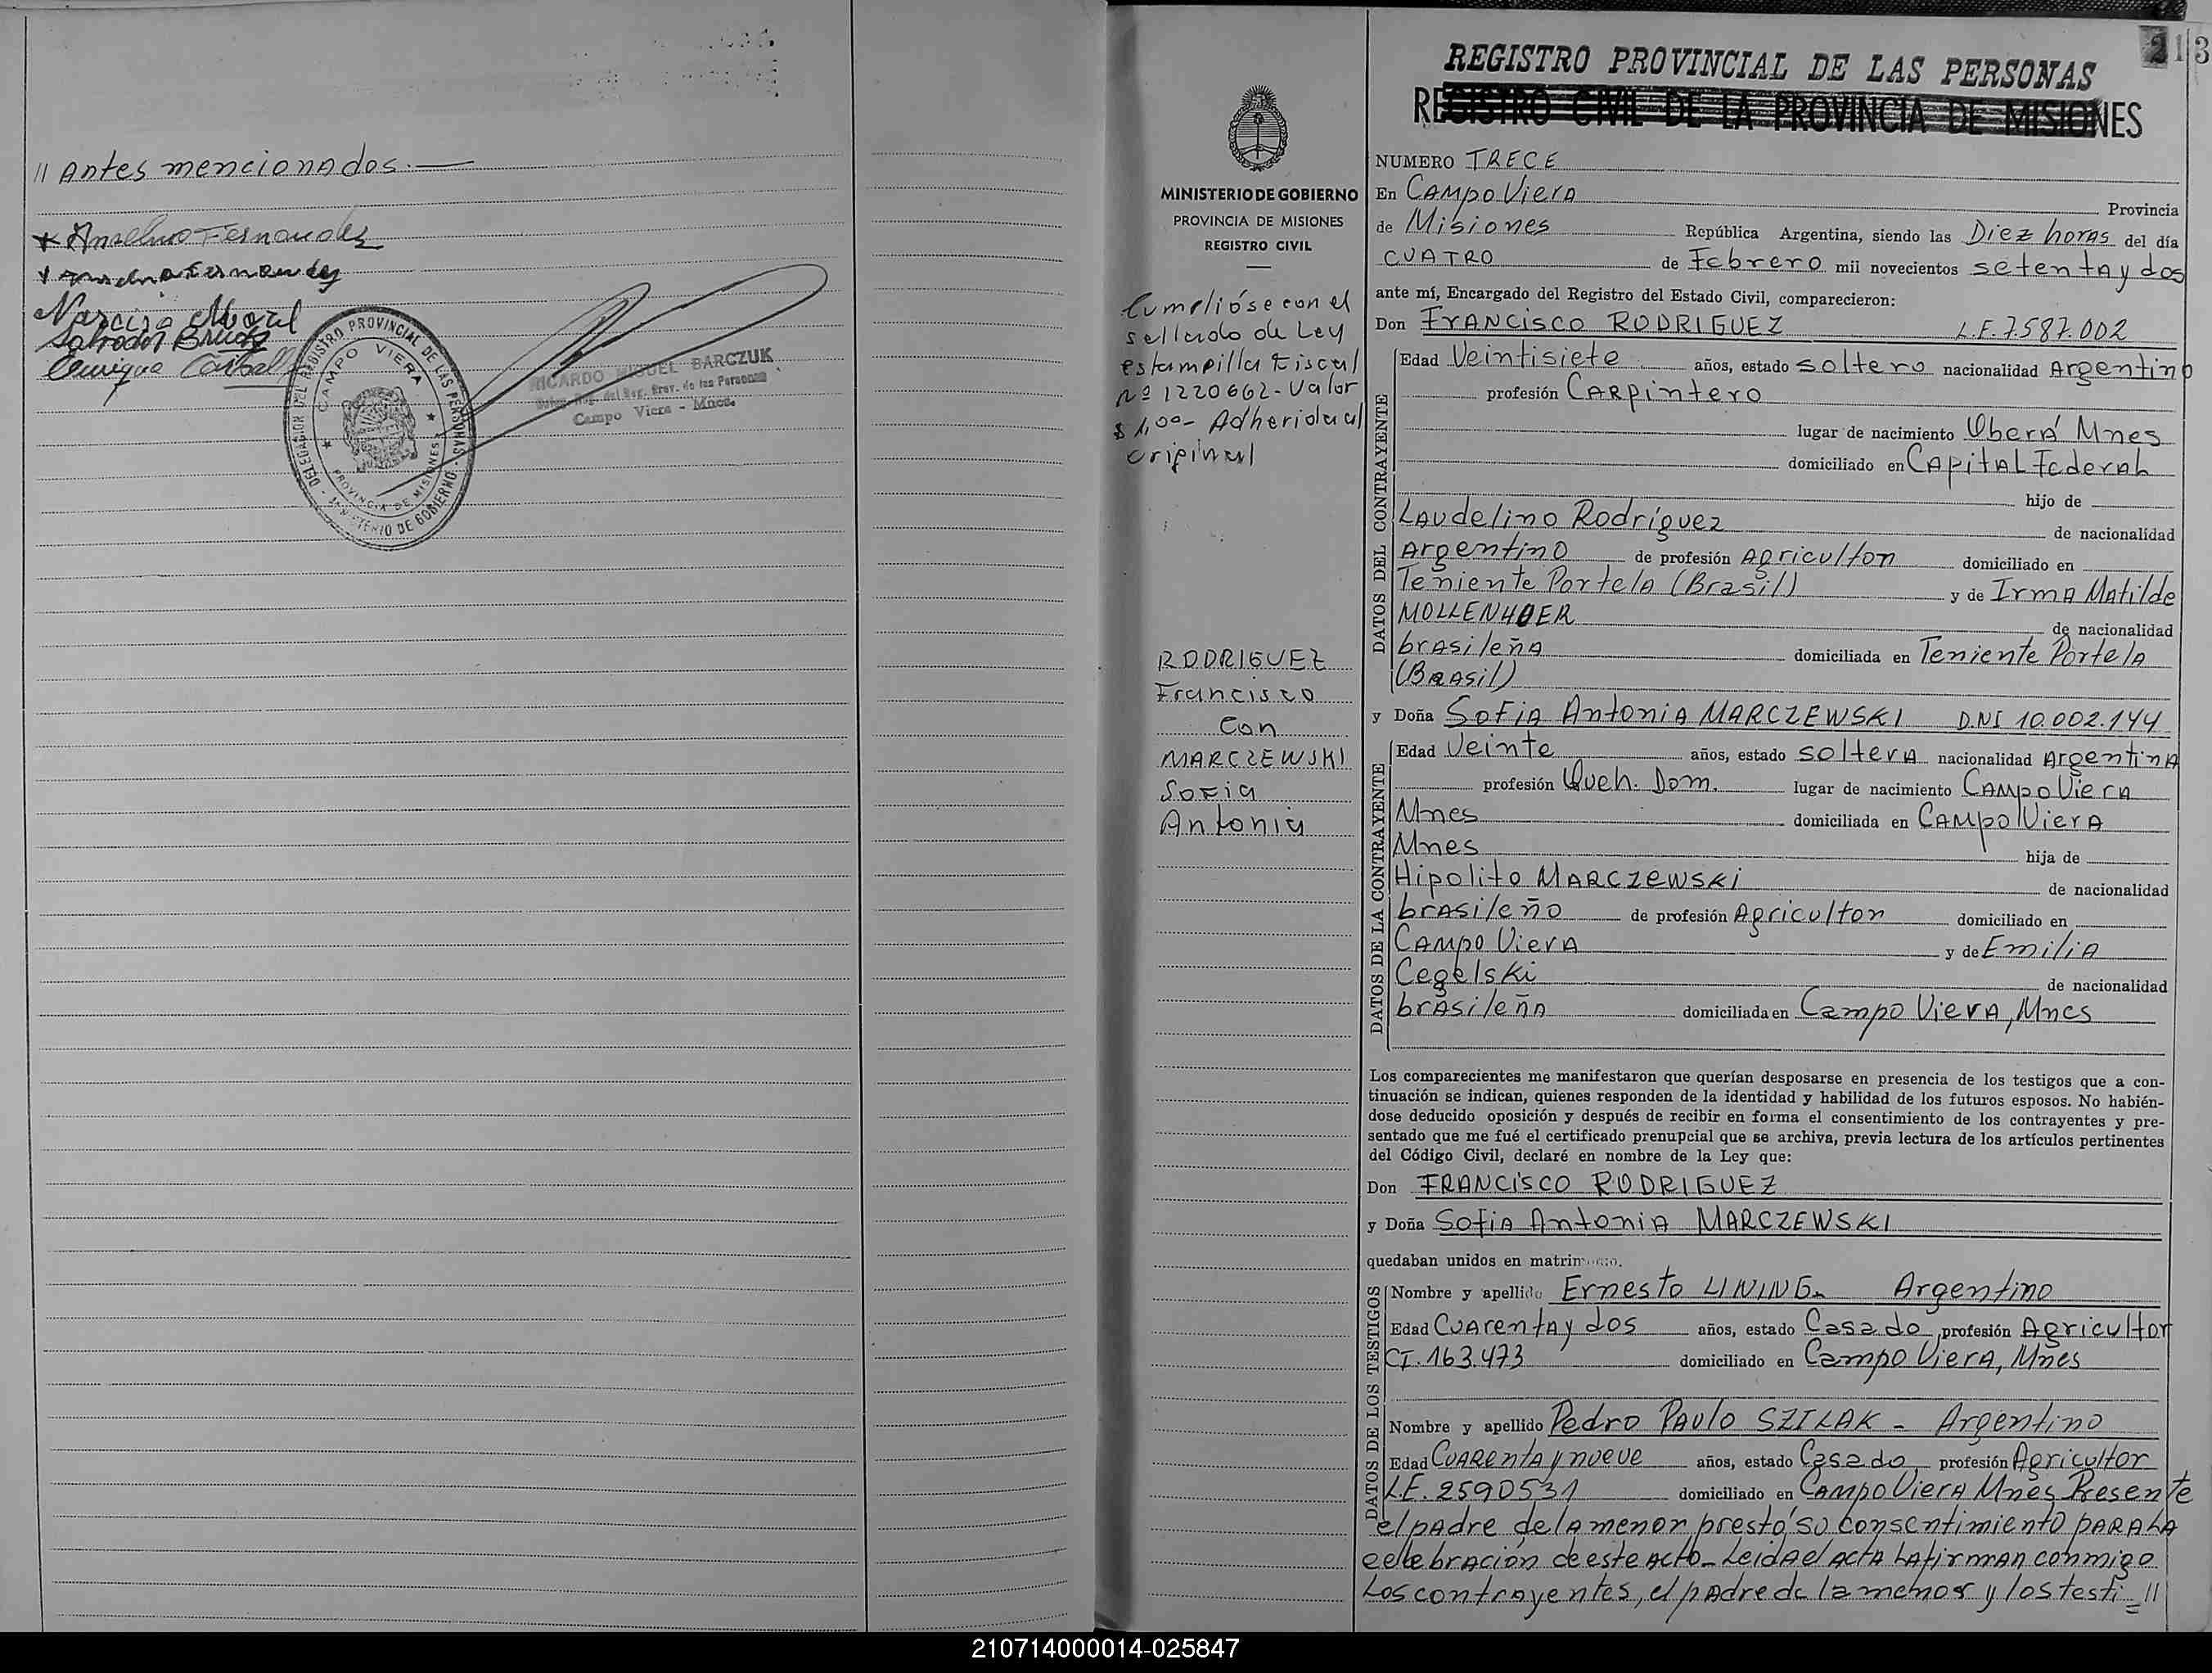 // Antes mencionados.—
Anselmo Fernandez
Narciso Moral
Salvador
Enrique
DELEGACION DEL REGISTRO PROVINCIAL DE LAS PERSONAS - MINISTERIO DE GOBIERNO -
CAMPO VIERA
PROVINCIA DE MISIONES
RICARDO MIGUEL BARCZUK
del Reg. Prov. de las Personas
Campo Viera - Mnes.
213
REGISTRO PROVINCIAL DE LAS PERSONAS
REGISTRO CIVIL DE LA PROVINCIA DE MISIONES
MINISTERIO DE GOBIERNO
PROVINCIA DE MISIONES
REGISTRO CIVIL
Cumplióse con el
sellado de Ley
estampilla Fiscal
nº 1220662- Valor
$ 1,00- Adherida al
original
RODRIGUEZ
Francisco
Con
MARCZEWSKI
Sofia
Antonia
NUMERO TRECE
En CAMPO VierA Provincia
de Misiones República Argentina, siendo las Diez horas del día
CUATRO de Febrero mil novecientos setenta y dos
ante mí, Encargado del Registro del Estado Civil, comparecieron:
Don FRANCISCO RODRIGUEZ L.E. 7.587.002
DATOS DEL CONTRAYENTE
Edad Veintisiete años, estado soltero nacionalidad Argentino
profesión CARpintero
lugar de nacimiento Oberá Mnes
domiciliado en CApitAL FederAL
hijo de
LAudelino Rodríguez de nacionalidad
Argentino de profesión Agricultor domiciliado en
Teniente PortelA (Brasil) y de IrmA Matilde
MOLLENHOER de nacionalidad
brAsileñA domiciliada en Teniente PortelA
(BRASil)
y Doña SOFiA AntoniA MARCZEWSKI D.N.I 10.002.144
DATOS DE LA CONTRAYENTE
Edad Veinte años, estado solterA nacionalidad ArgentinA
profesión Queh. Dom. lugar de nacimiento CAMpo VierA
Mnes domiciliada en CAMpo VierA
Mnes hija de
Hipolito MARCZEWSKi de nacionalidad
brAsileño de profesión Agricultor domiciliado en
CAMpo VierA y de EmiliA
Cegelski de nacionalidad
brAsileñA domiciliada en Campo VierA, Mnes
Los comparecientes me manifestaron que querían desposarse en presencia de los testigos que a con-
tinuación se indican, quienes responden de la identidad y habilidad de los futuros esposos. No habién-
dose deducido oposición y después de recibir en forma el consentimiento de los contrayentes y pre-
sentado que me fué el certificado prenupcial que se archiva, previa lectura de los artículos pertinentes
del Código Civil, declaré en nombre de la Ley que:
Don FRANCISCO RODRIGUEZ
y Doña SofiA AntoniA MARCZEWSKI
quedaban unidos en matrimonio.
DATOS DE LOS TESTIGOS
Nombre y apellido Ernesto LINING- Argentino
Edad CUArentAy dos años, estado Casado profesión Agricultor
CI. 163.473 domiciliado en Campo VierA, Mnes
Nombre y apellido Pedro PAulo SZILAK - Argentino
Edad CUARentA y nueve años, estado Casado profesión Agricultor
L.E. 2590531 domiciliado en CAmpo VierA Mnes Presente
el pAdre de lA menor prestó su consentimiento pARA LA
celebrAción de este Acto- LeidA el ActA LA firmAn conmigo
Los contrayentes, el pAdre de la menor y los testi= //
210714000014-025847